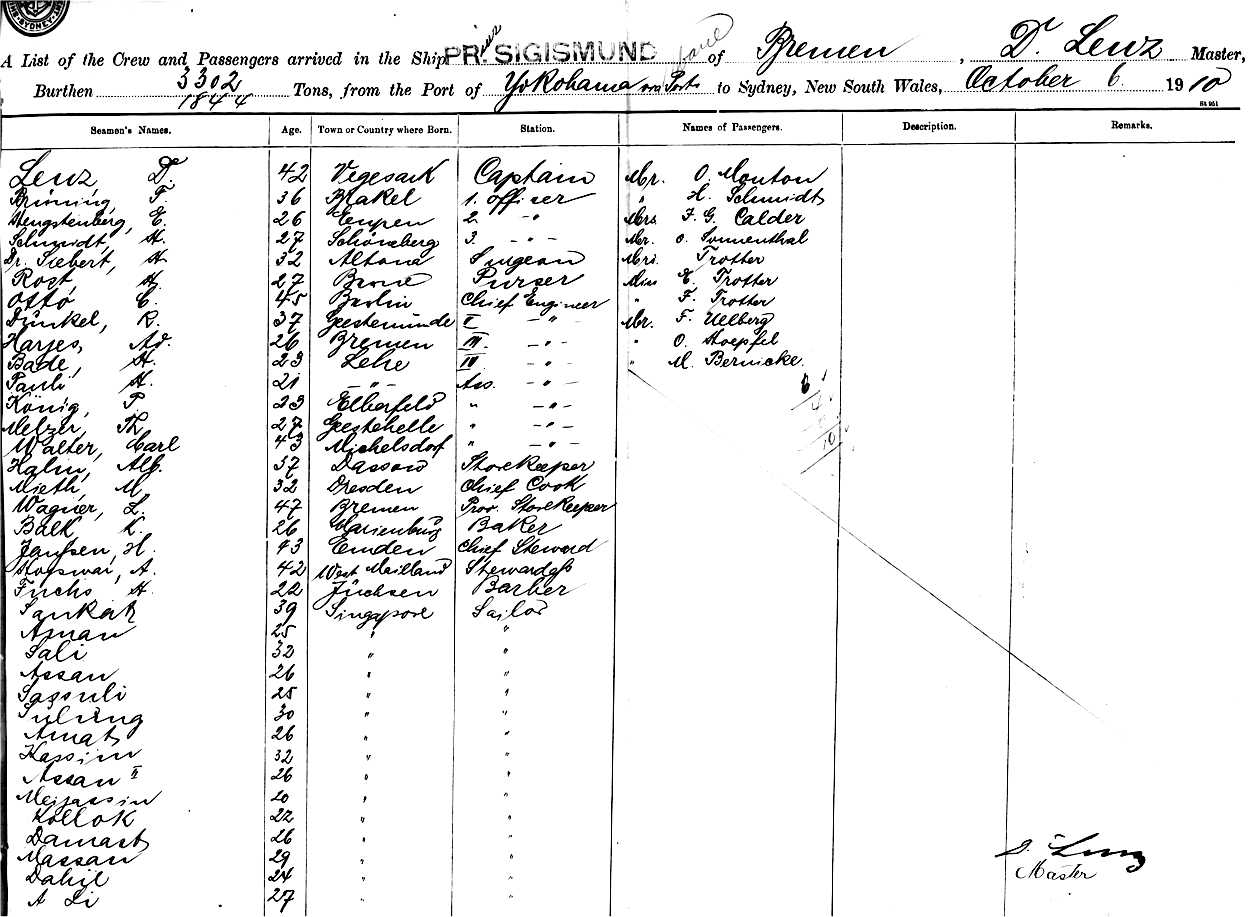 SYDNEY
A List of the Crew and Passengers arrived in the Ship PR. SIGISMUND of Bremen, D. Lenz Master,
Burthen 3302 1844 Tons, from the Port of Yokohama via Ports to Sydney, New South Wales, October 6 1910
Seamen's Names. Age. Town or Country where Born. Station. Names of Passengers. Description. Remarks.
Lenz, D. 42 Vegesack Captain Mr. O. Mouton
Brüning, F. 36 Brakel 1. Officer " H. Schmidt
Hengstenberg, E. 26 Eupen 2. -"- Mrs F. G. Calder
Schmidt, H. 27 Schöneberg 3. -"- Mr. O. Sonnenthal
Dr. Siebert, H. 32 Altona Surgeon Mrs. Trotter
Rost, H. 27 Berne Purser Miss E. Trotter
Otto C. 45 Berlin Chief Engineer " F. Trotter
Dünkel, R. 37 Geestemünde II -"- Mr. F. Uelberg
Harjes, Ad. 26 Bremen III -"- " O. Stoepfel
Bade, H. 23 Lehe IV -"- " M. Bernicke
Pauli H. 21 -"- Ass. -"-
König, P 23 Elberfeld " -"-
Melzer, Th 27 Geestehelle " -"-
Walter, Carl 43 Michelsdorf " -"-
Halm, Alf. 37 Dassow Storekeeper
Mieth, M. 32 Dresden Chief Cook
Wagner, L. 47 Bremen Prov. Storekeeper
Balk K. 26 Marienburg Baker
Janssen, H. 43 Emden Chief Steward
A. 42 West Mailland Stewardess
Fuchs H. 22 Jüchsen Barber
Sankat 39 Singapore Sailor
Aman 25 " "
Sali 32 " "
Assan 26 " "
Sassuli 25 " "
30 " "
Amat 26 " "
Kassim 32 " "
Assan II 26 " "
Meijassin 20 " "
Kollok 22 " "
Damast 26 " "
Massan 29 " "
Dahil 24 " "
A Li 27 " "
10
D. Lenz
Master